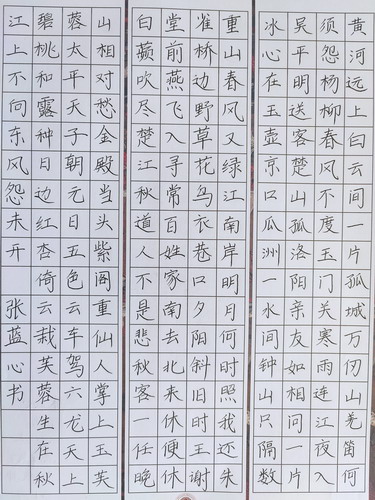 黄河远上白云间一片孤城万仞山羌笛何
须怨杨柳春风不度玉门关寒雨连江夜入
吴平明送客楚山孤洛阳亲友如相问一片
冰心在玉壶京口瓜洲一水间钟山只隔数
重山春风又绿江南岸明月何时照我还朱
雀桥边野草花乌衣巷口夕阳斜旧时王谢
堂前燕飞入寻常百姓家南去北来休便休
白蘋吹尽楚江秋道人不是悲秋客一任晚
山相对愁金殿当头紫阁重仙人掌上玉芙
蓉太平天子朝元日五色云车驾六龙天上
碧桃和露种日边红杏倚云栽芙蓉生在秋
江上不向东风怨未开 张蓝心书